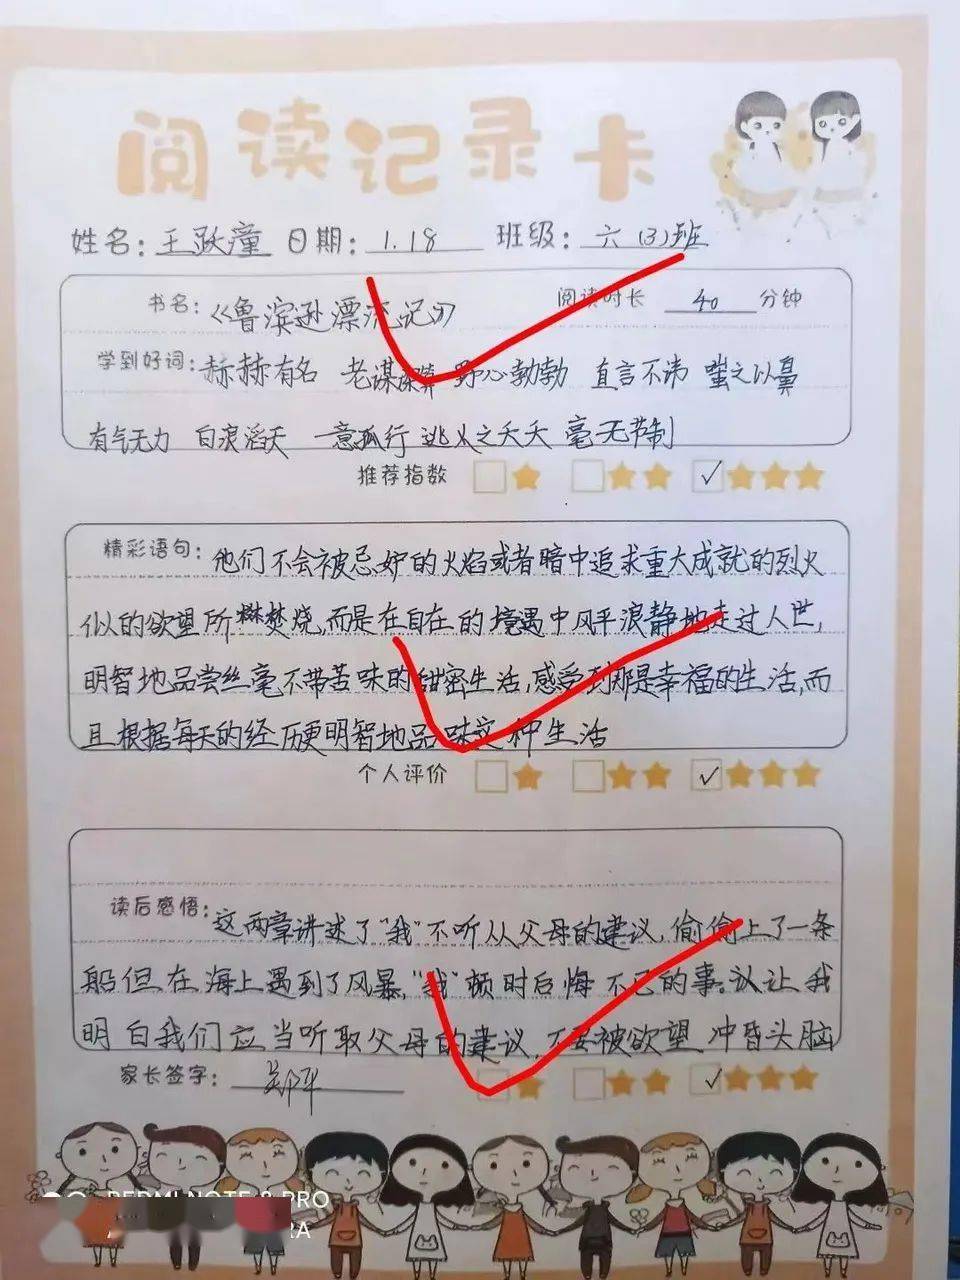 阅读记录卡
姓名：王跃潼 日期：1.18 班级：六（3）班
书名：《鲁滨逊漂流记》 阅读时长 40 分钟
学到好词：赫赫有名 老谋深算 野心勃勃 直言不讳 嗤之以鼻
有气无力 白浪滔天 一意孤行 逃义之夭夭 毫无节制
推荐指数
精彩语句：他们不会被忌妒的火焰或者暗中追求重大成就的烈火
似的欲望所焚烧，而是在自在的境遇中风平浪静地走过人世，
明智地品尝丝毫不带苦味的甜密生活，感受到那是幸福的生活，而
且根据每天的经历更明智地品味这种生活
个人评价
读后感悟：这两章讲述了“我”不听从父母的建议，偷偷上了一条
船但在海上遇到了风暴，“我”顿时后悔不已的事。这让我
明白我们应当听取父母的建议，不要被欲望冲昏头脑
家长签字：
REDMI NOTE 8 PRO